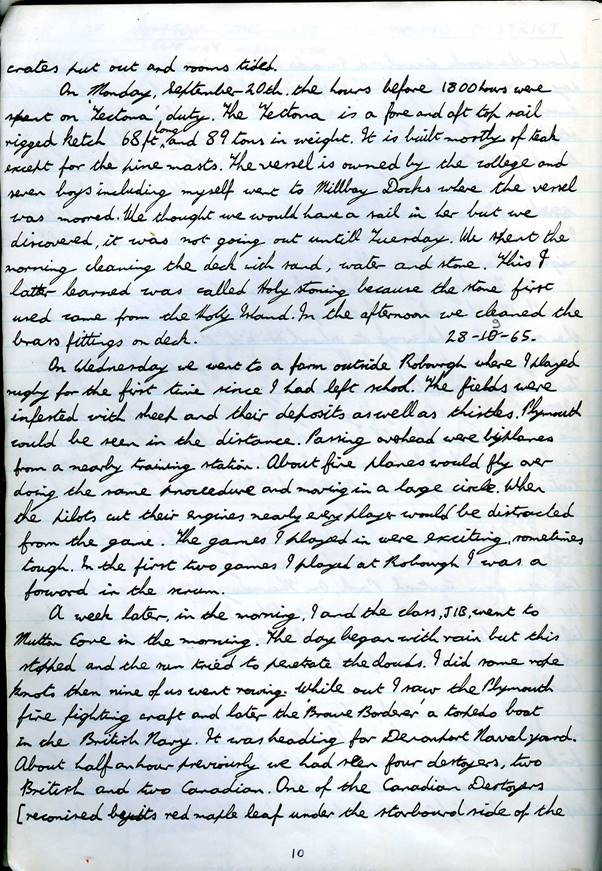 crates put out and rooms tided.
On Monday, September 20th. the hours before 1800 hours were
spent on 'Tectona' duty. The Tectona is a fore and aft top sail
rigged ketch 68 ft long and 89 tons in weight. It is built mostly of teak
except for the pine masts. The vessel is owned by the college and
seven boys including myself went to Millbay Docks where the vessel
was moored. We thought we would have a sail in her but we
discovered, it was not going out untill Tuesday. We spent the
morning cleaning the deck with sand, water and stone. This I
latter learned was called Holy stoning because the stone first
used came from the Holy Island. In the afternoon we cleaned the
brass fittings on deck. 28-9-65.
On Wednesday we went to a farm outside Robourgh where I played
rugby for the first time since I had left school. The fields were
infested with sheep and their deposits as well as thistles. Plymouth
could be seen in the distance. Passing overhead were biplanes
from a nearby training station. About five planes would fly over
doing the same proccedure and moving in a large circle. When
the pilots cut their engines nearly every player would be distracted
from the game. The games I played in were exciting, sometimes
tough. In the first two games I played at Robourgh I was a
forword in the scrum.
A week later, in the morning, I and the class, J1B, went to
Mutton Cove in the morning. The day began with rain but this
stopped and the sun tried to penetrate the clouds. I did some rope
knots then nine of us went rowing. While out I saw the Plymouth
fire fighting craft and later the 'Brave Borderer' a torpedo boat
in the British Navy. It was heading for Devonport Naval yard.
About half an hour previously we had seen four destoyers, two
British and two Canadian. One of the Canadian Destoyers
[reconised by its red maple leaf under the starbourd side of the
10